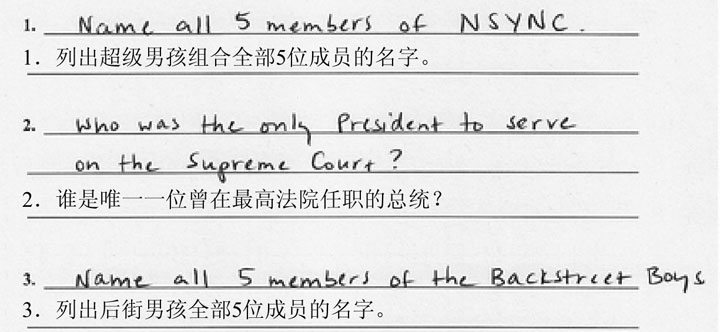 1. Name all 5 members of NSYNC.
1. 列出超级男孩组合全部5位成员的名字。
2. Who was the only President to serve
on the Supreme Court?
2. 谁是唯一一位曾在最高法院任职的总统？
3. Name all 5 members of the Backstreet Boys
3. 列出后街男孩全部5位成员的名字。